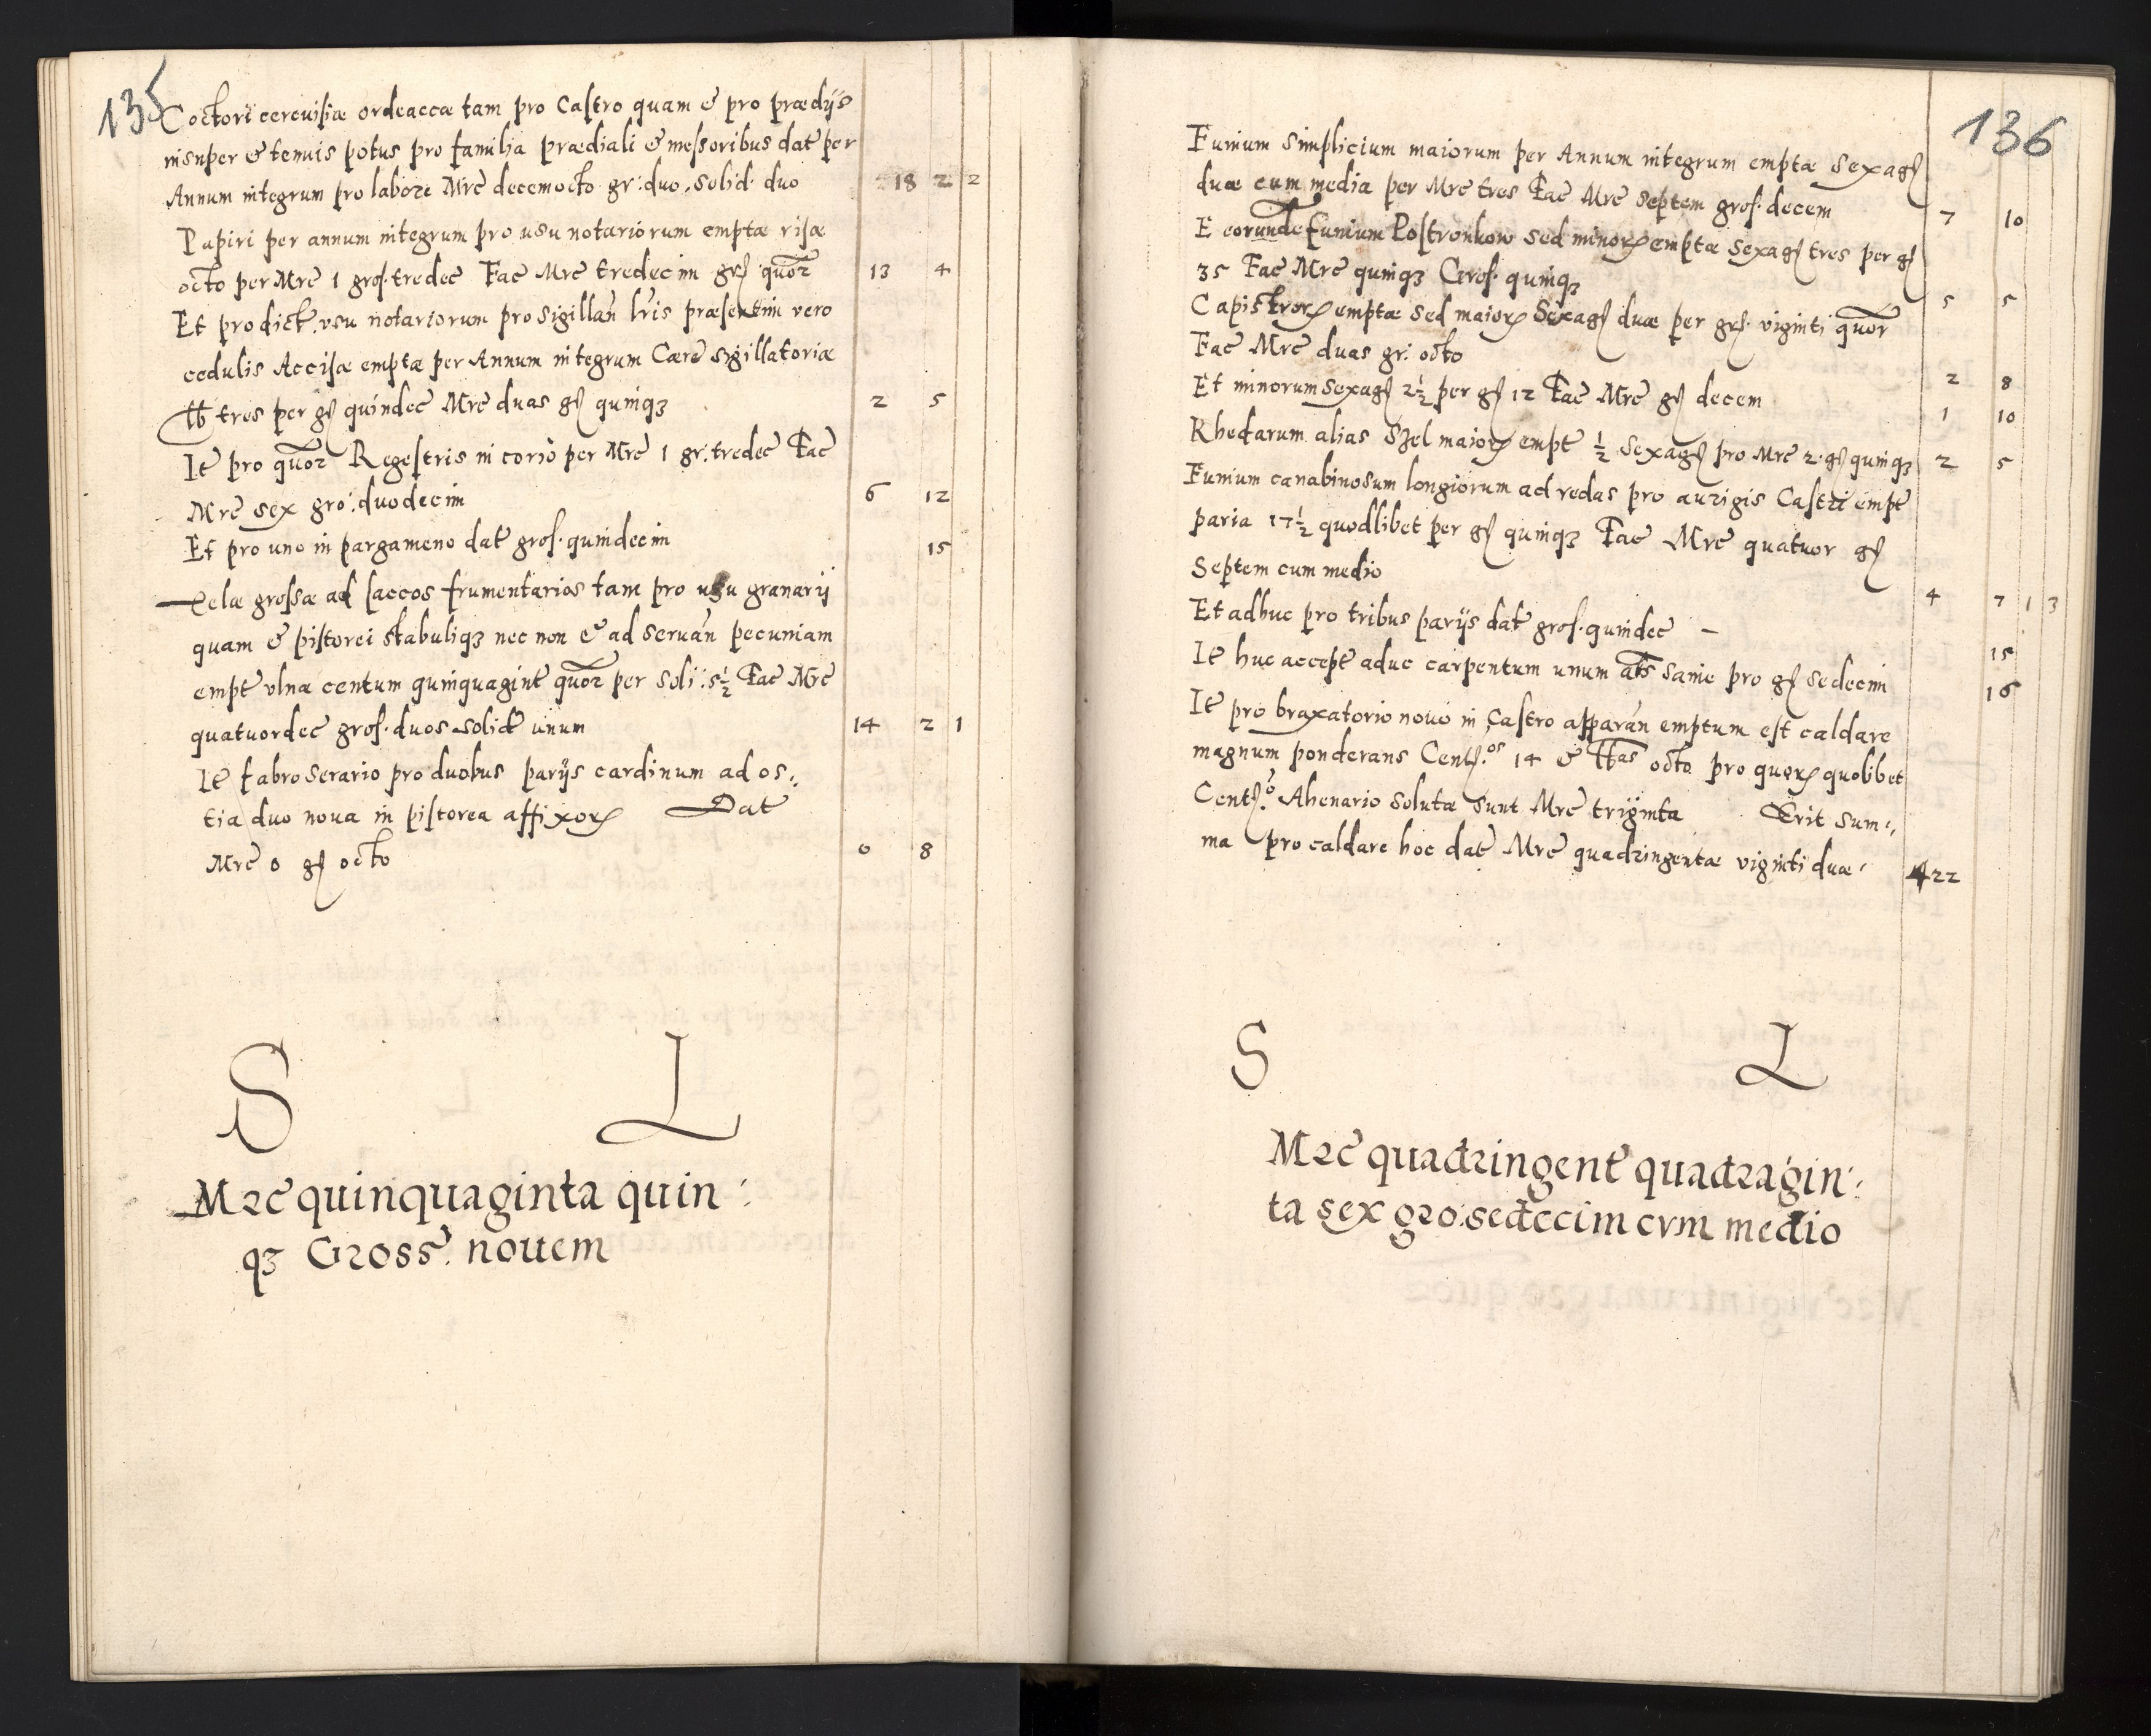 135
Coctori cerevisiæ ordeaceæ tam pro Castro quam & pro prædijs
insuper & tenuis potus pro familia prædiali & messoribus dat per
Annum integrum pro labore Mrc decemocto gr: duo, solid: duo 18 2 2
Papiri per annum integrum pro usu notariorum emptæ risæ
octo per Mrc 1 gros. tredec Fac Mrc tredecim grs quor 13 4
Et pro dict. vsu notariorum pro sigillan lris præsertim vero
cedulis Accisæ emptæ per Annum integrum Cære sigillatoriæ
lb tres per gs quindec Mrc duas gs quinqz 2 5
It pro quor Regestris in corio per Mrc 1 gr. tredec Fac
Mrc sex gro: duodecim 6 12
Et pro uno in pargameno dat gros. quindecim 15
Telæ grossæ ad saccos frumentarios tam pro usu granarij
quam & pistorei stabuliqz nec non & ad servan pecuniam
empt vlnæ centum quinquagint quor per soli: 5½ Fac Mrc
quatuordec gros. duos solid unum 14 2 1
It fabro serario pro duobus parijs cardinum ad os:,
tia duo nova in pistorea affixor Dat
Mrc 0 gs octo 0 8
S L
Mrc quinquaginta quin:
qz Gross. novem
136
Funium simplicium maiorum per Annum integrum emptæ Sexags
duæ cum media per Mrc tres Fac Mrc septem gros. decem 7 10
E eorunde funium Postronkow sed minor emptæ Sexags tres per gs
35 Fac Mrc quinqz Gros. quinqz 5 5
Capistror emptæ sed maior Sexags duæ per grs. viginti quor
Fac Mrc duas gr: octo 2 8
Et minorum Sexags 2½ per gs 12 Fac Mrc gs decem 1 10
Rhedarum alias Szel maior empt ½ Sexags pro Mrc 2. gs quinqz 2 5
Funium canabinosum longiorum ad redas pro aurigis Castri empt
paria 17½ quodlibet per gs quinqz Fac Mrc quatuor gs
Septem cum medio 4 7 1 3
Et adhuc pro tribus parijs dat gros. quindec – 15
It huc accept aduc carpentum unum als Sanie pro gs sedecim 16
It pro braxatorio novo in Castro apparan emptum est caldare
magnum ponderans Cents.os 14 & lbas octo pro quor quolibet
Cents.o Ahenario solutæ sunt Mrc triginta Erit sum:,
ma pro caldare hoc dat Mrc quadringentæ viginti duæ 422
S L
Mrc quadringent quadragin:
ta sex gro. sedecim cvm medio